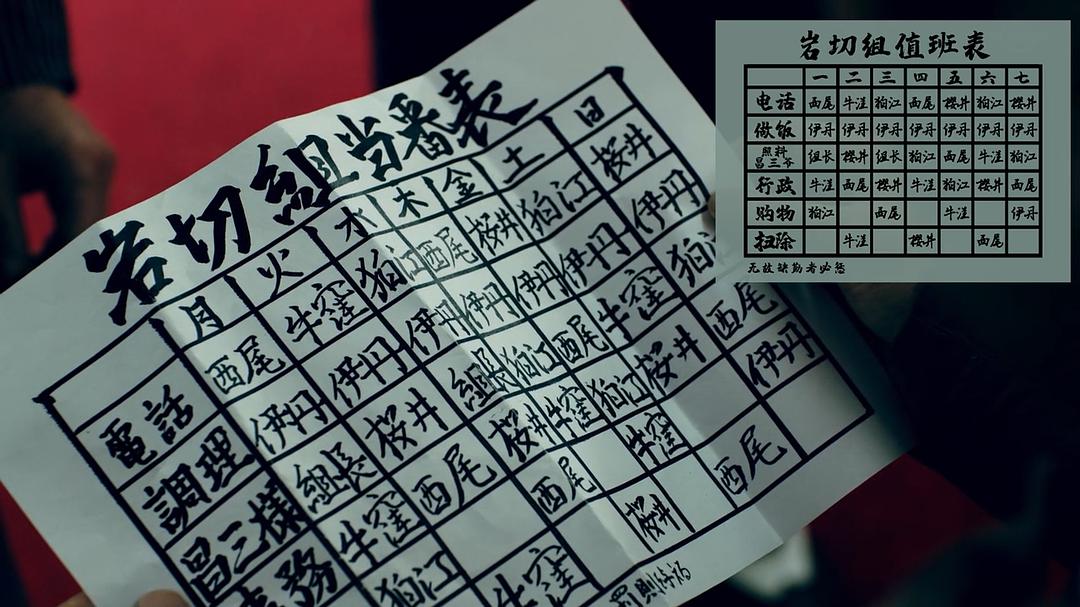 岩切組当番表
月 火 水 木 金 土 日
電話 西尾 牛窪 狛江 西尾 桜井 狛江 桜井
調理 伊丹 伊丹 伊丹 伊丹 伊丹 伊丹 伊丹
昌三様 組長 桜井 組長 狛江 西尾 牛窪 狛江
務 牛窪 西尾 桜井 牛窪 狛江 桜井 西尾
狛江 西尾 牛窪 伊丹
牛窪 桜井 西尾
岩切组值班表
一 二 三 四 五 六 七
电话 西尾 牛洼 狛江 西尾 樱井 狛江 樱井
做饭 伊丹 伊丹 伊丹 伊丹 伊丹 伊丹 伊丹
照料昌三爷 组长 樱井 组长 狛江 西尾 牛洼 狛江
行政 牛洼 西尾 樱井 牛洼 狛江 樱井 西尾
购物 狛江 西尾 牛洼 伊丹
扫除 牛洼 樱井 西尾
无故缺勤者必惩